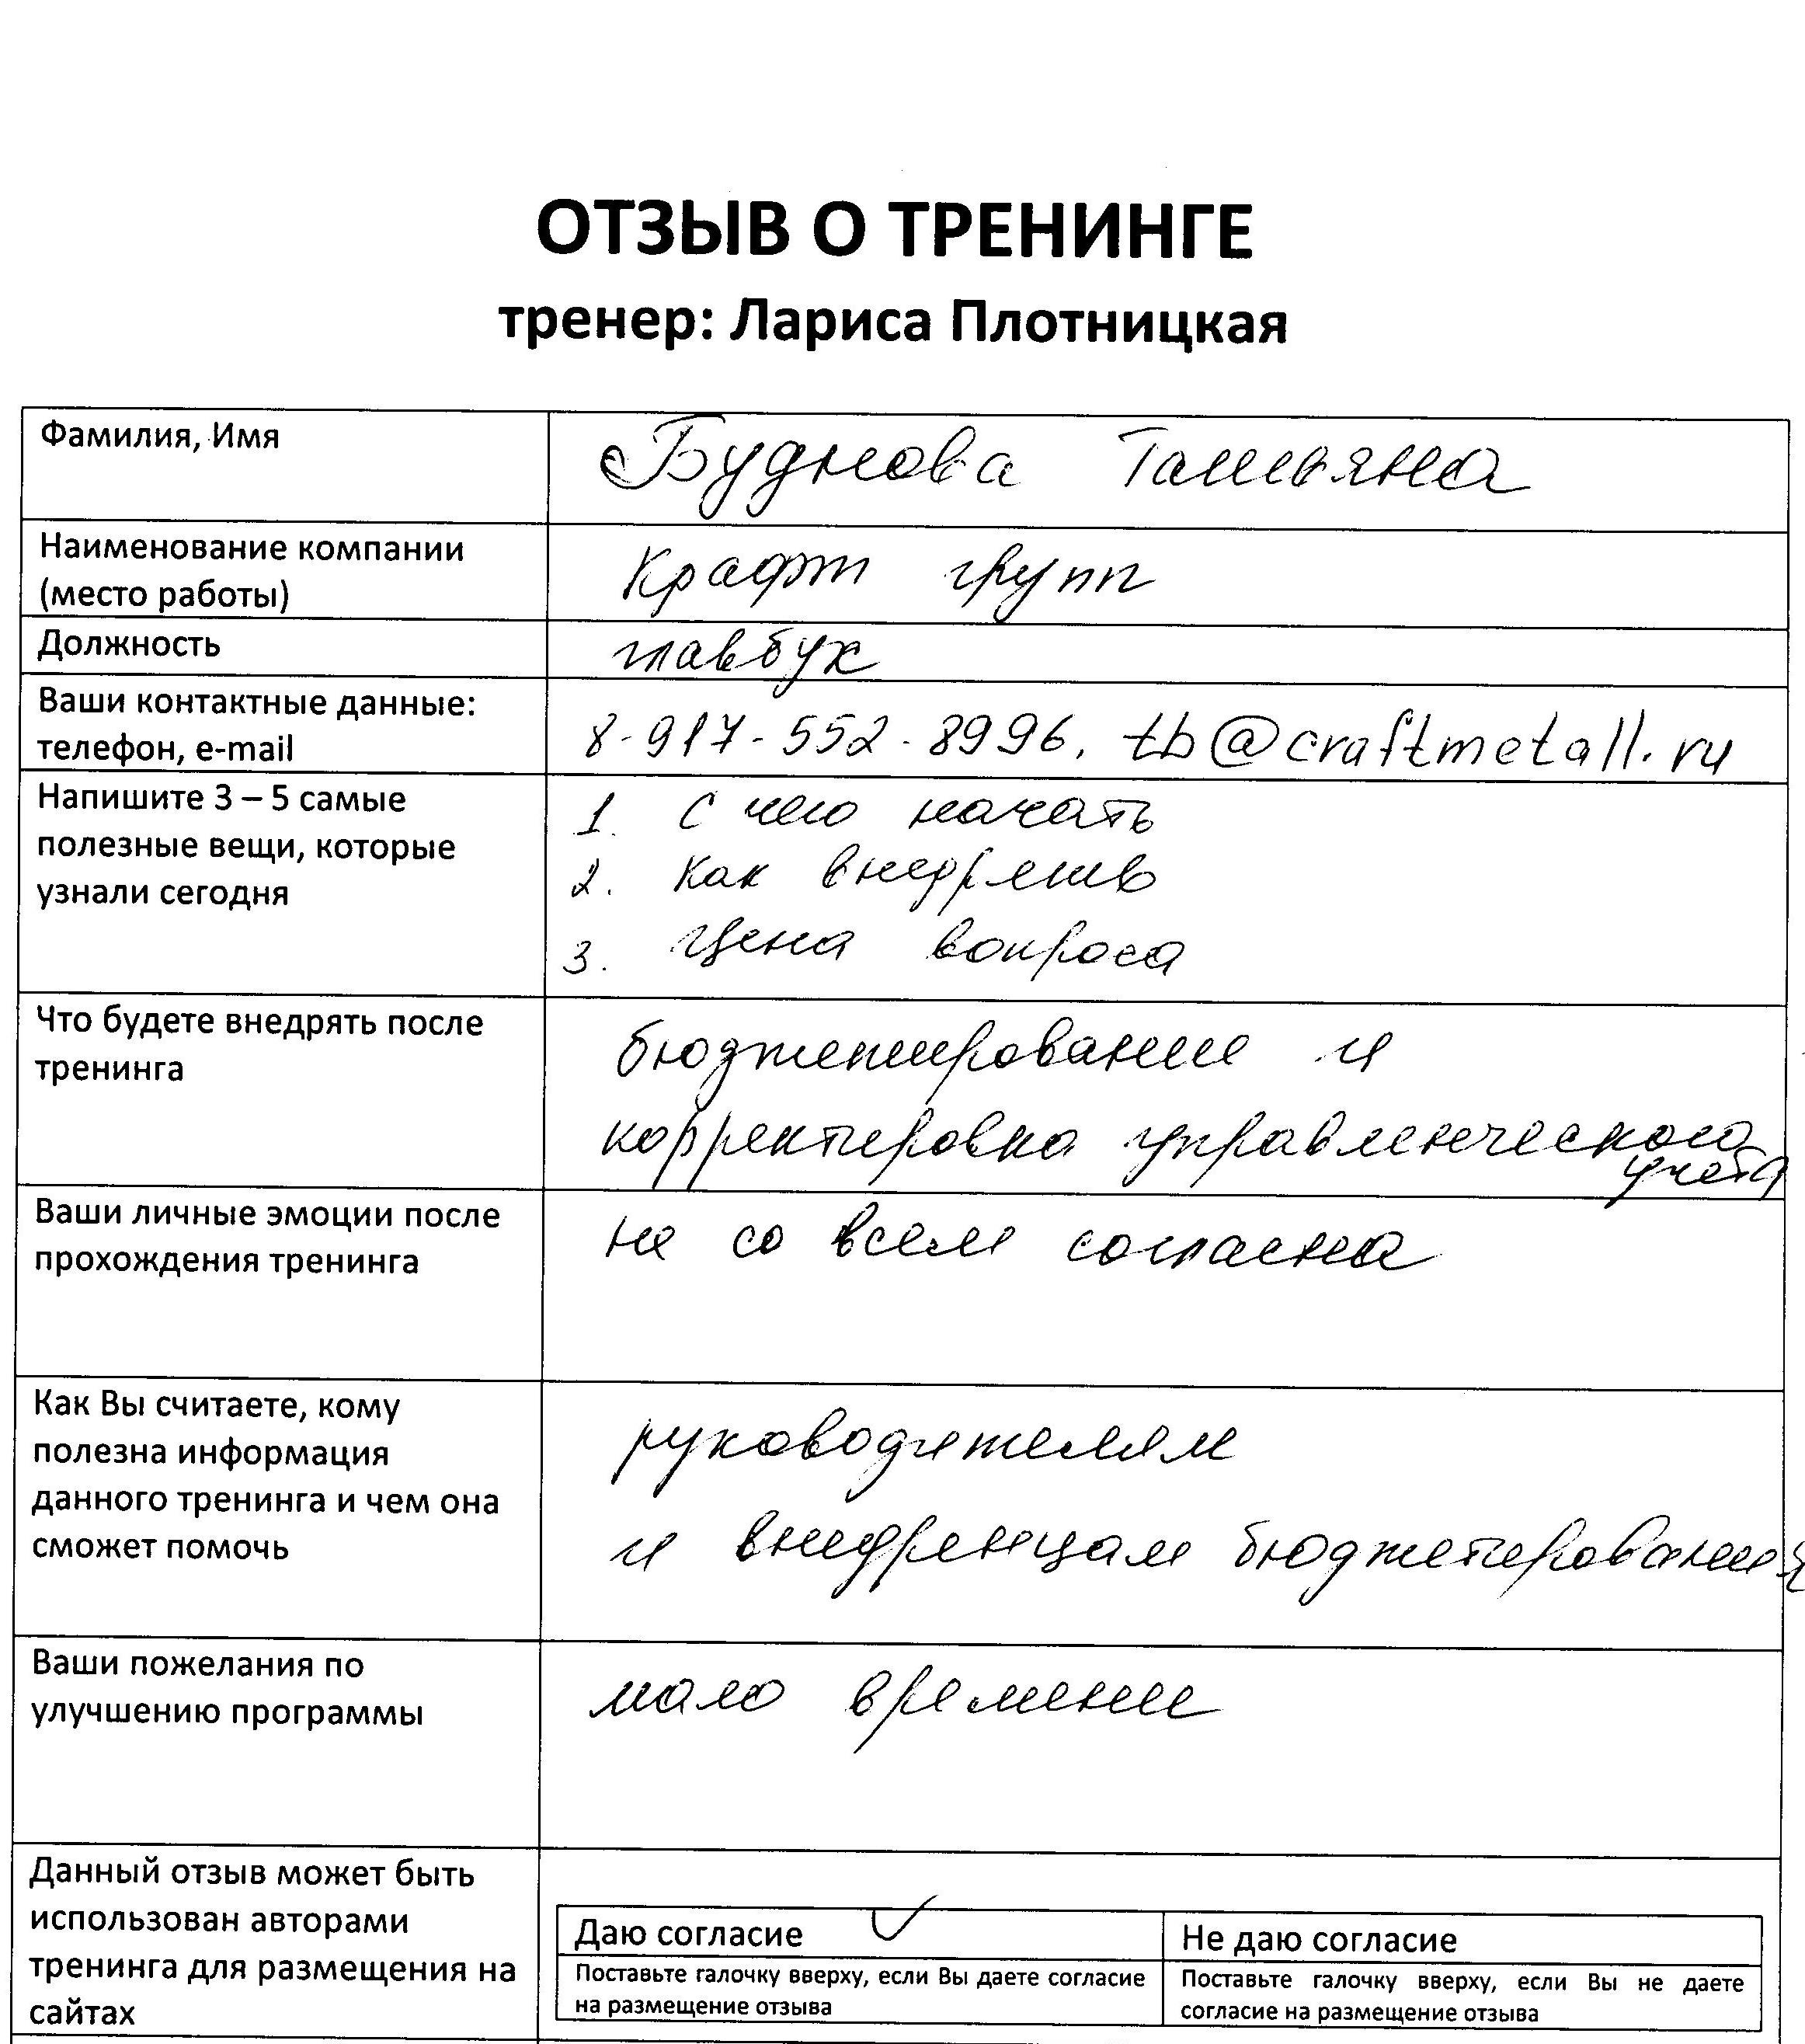 ОТЗЫВ О ТРЕНИНГЕ
тренер: Лариса Плотницкая
Фамилия, Имя
Буднова Татьяна
Наименование компании
(место работы)
Крафт групп
Должность
главбух
Ваши контактные данные:
телефон, e-mail
8-917-552-8996, tb@craftmetall.ru
Напишите 3 – 5 самые
полезные вещи, которые
узнали сегодня
1. с чего начать
2. как внедрить
3. цена вопроса
Что будете внедрять после
тренинга
бюджетирование и
корректировка управленческого
учета
Ваши личные эмоции после
прохождения тренинга
не со всем согласна
Как Вы считаете, кому
полезна информация
данного тренинга и чем она
сможет помочь
руководителям
и внедренцам бюджетирования
Ваши пожелания по
улучшению программы
мало времени
Данный отзыв может быть
использован авторами
тренинга для размещения на
сайтах
Даю согласие
Поставьте галочку вверху, если Вы даете согласие
на размещение отзыва
Не даю согласие
Поставьте галочку вверху, если Вы не даете
согласие на размещение отзыва